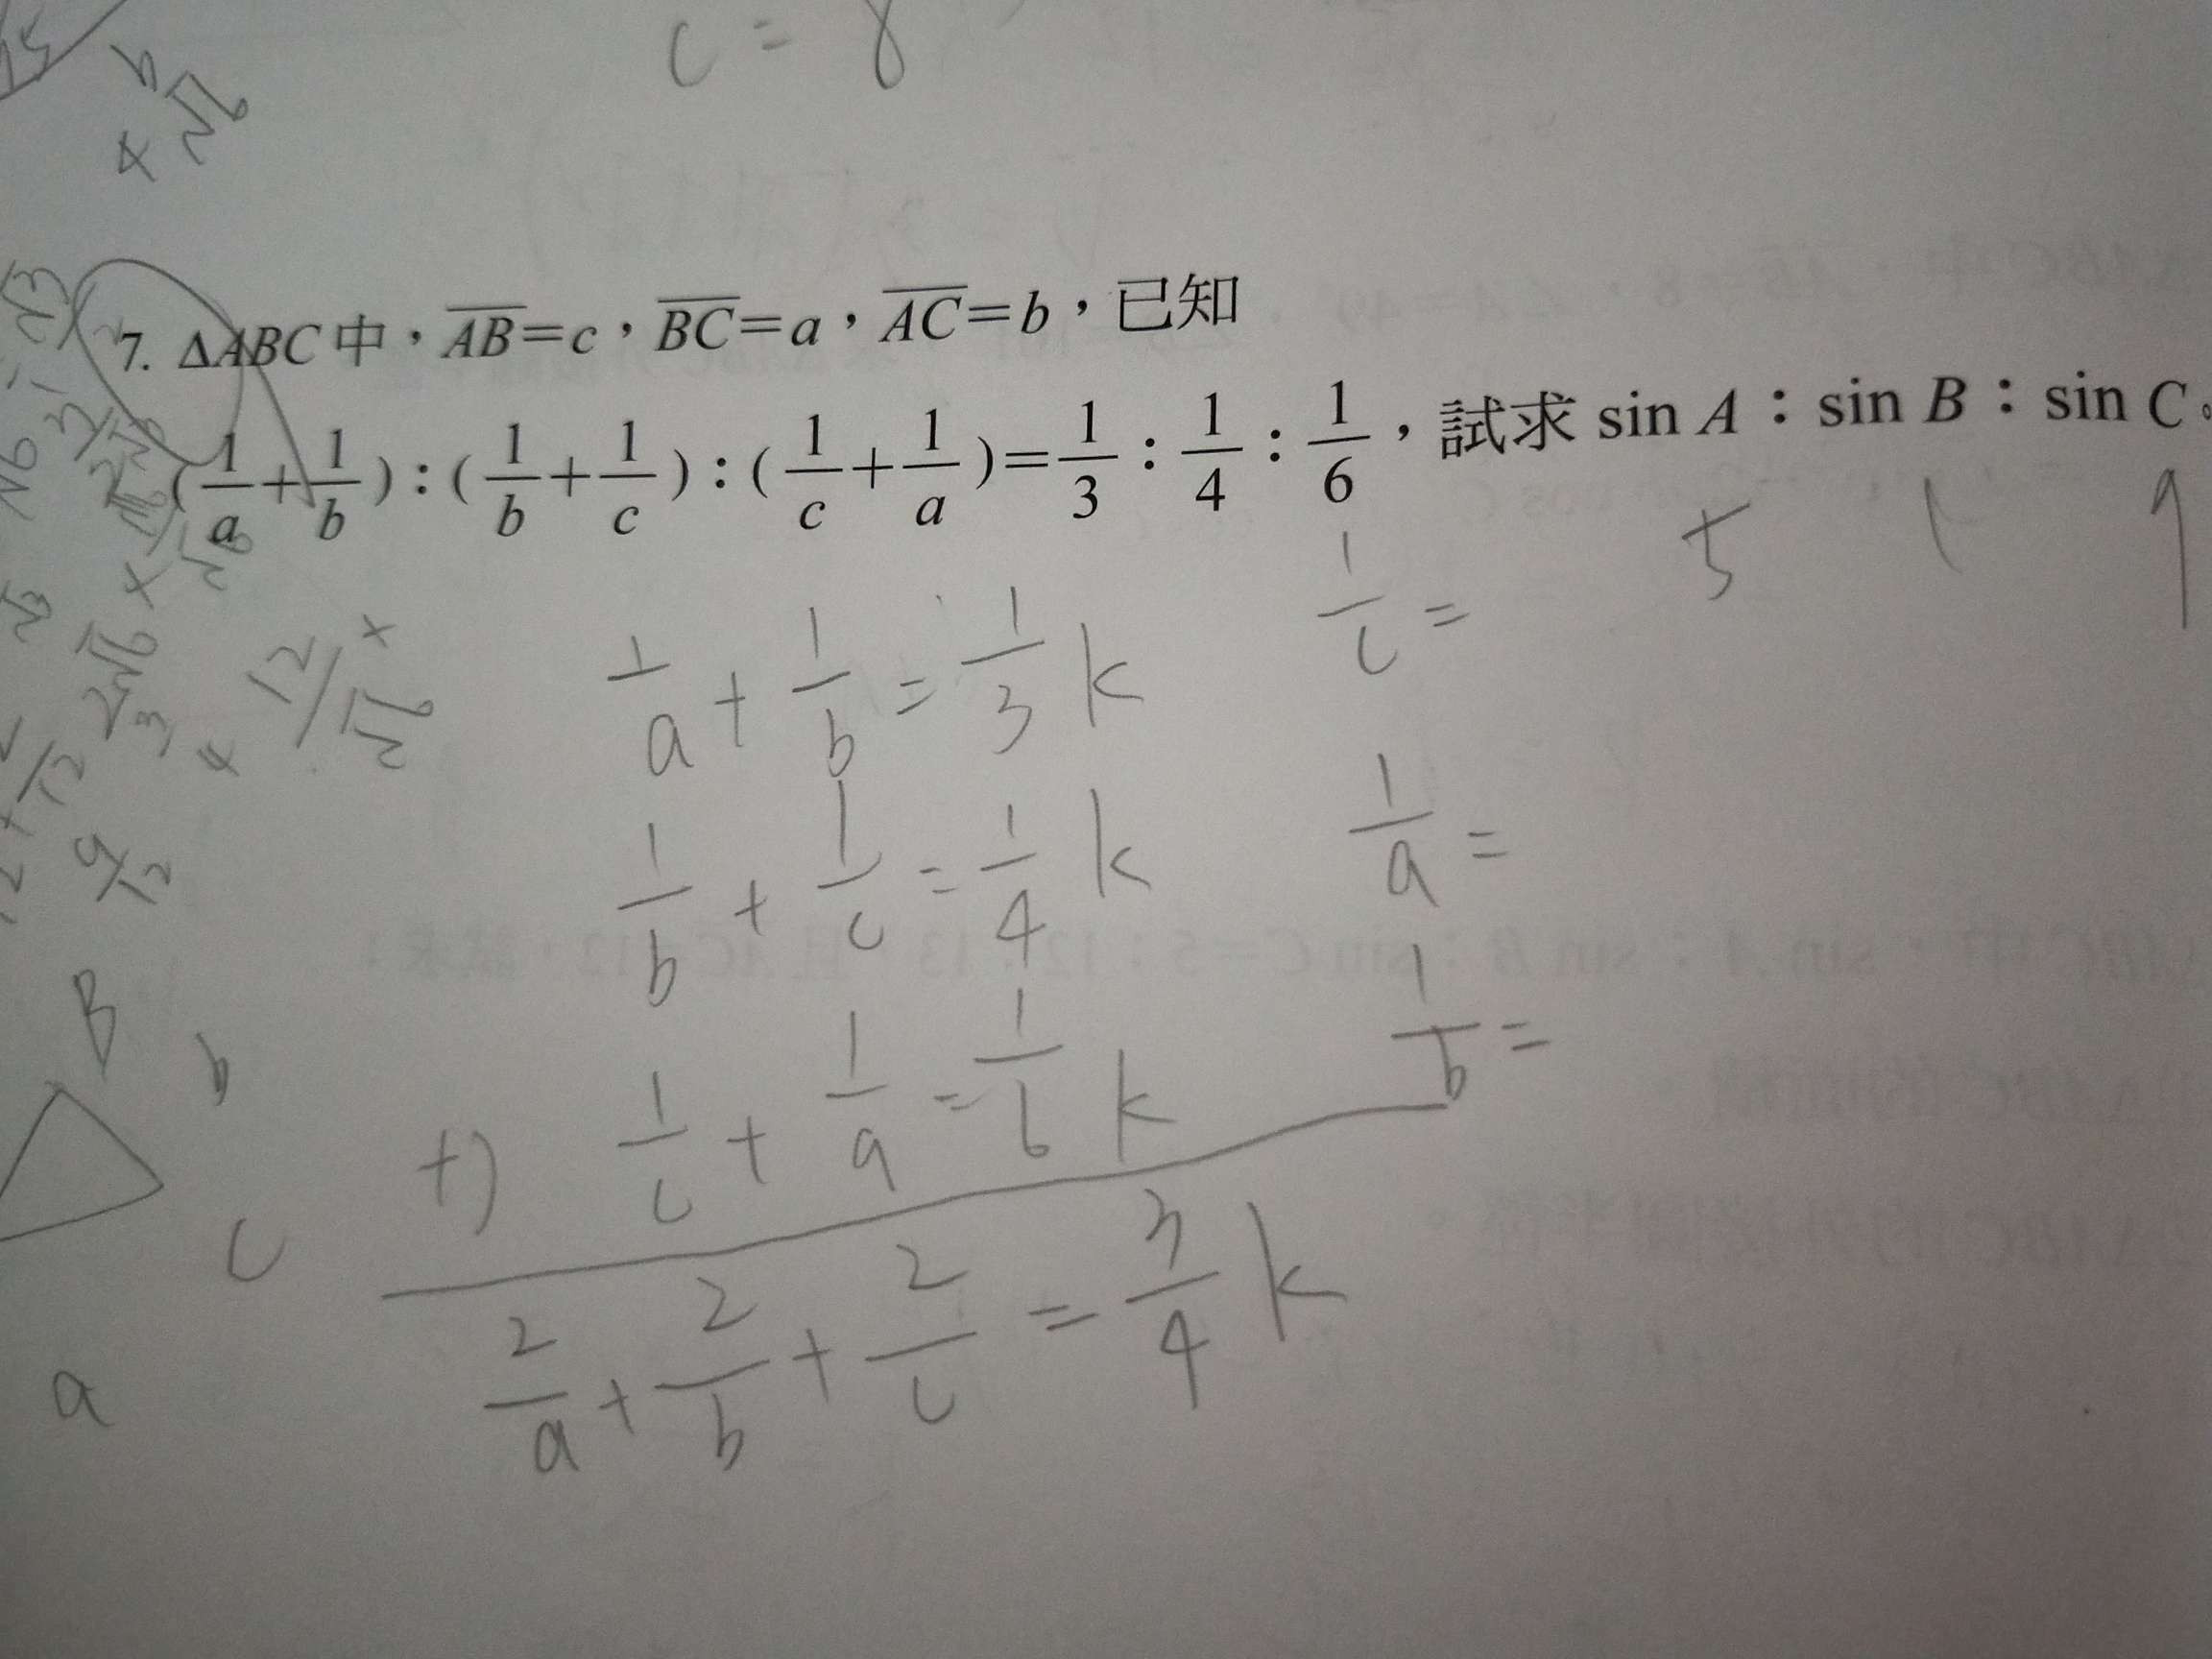 c = 8
b
4√6
7. ΔABC 中，AB=c，BC=a，AC=b，已知
(1/a+1/b):(1/b+1/c):(1/c+1/a)=1/3:1/4:1/6，試求 sin A：sin B：sin C。
5 1 9
1/a + 1/b = 1/3 k
1/c =
1/b + 1/c = 1/4 k
1/a =
1/c + 1/a = 1/6 k
1/b =
+)
2/a + 2/b + 2/c = 3/4 k
12/√6
9/12
B
b
c
a